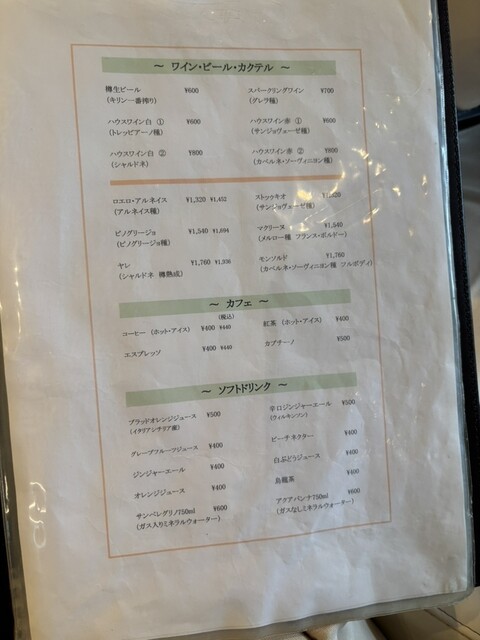 ～ ワイン・ビール・カクテル ～
樽生ビール ¥600
(キリン一番搾り)
スパークリングワイン ¥700
(グレラ種)
ハウスワイン白 ① ¥600
(トレッビアーノ種)
ハウスワイン赤 ① ¥600
(サンジョヴェーゼ種)
ハウスワイン白 ② ¥800
(シャルドネ)
ハウスワイン赤 ② ¥800
(カベルネ・ソーヴィニヨン種)
ロエロ・アルネイス ¥1,320 ¥1,452
(アルネイス種)
ストゥッキオ
(サンジョヴェーゼ種)
ピノグリージョ ¥1,540 ¥1,694
(ピノグリージョ種)
マクリーヌ ¥1,540
(メルロー種 フランス・ボルドー)
ヤレ ¥1,760 ¥1,936
(シャルドネ 樽熟成)
モンソルド ¥1,760
(カベルネ・ソーヴィニヨン種 フルボディ)
～ カフェ ～
(税込)
コーヒー (ホット・アイス) ¥400 ¥440
紅茶 (ホット・アイス) ¥400
エスプレッソ ¥400 ¥440
カプチーノ ¥500
～ ソフトドリンク ～
ブラッドオレンジジュース ¥500
(イタリアシチリア産)
辛口ジンジャーエール ¥500
(ウィルキンソン)
グレープフルーツジュース ¥400
ピーチネクター ¥400
ジンジャーエール ¥400
白ぶどうジュース ¥400
オレンジジュース ¥400
烏龍茶 ¥400
サンペレグリノ750ml ¥600
(ガス入りミネラルウォーター)
アクアパンナ750ml ¥600
(ガスなしミネラルウォーター)